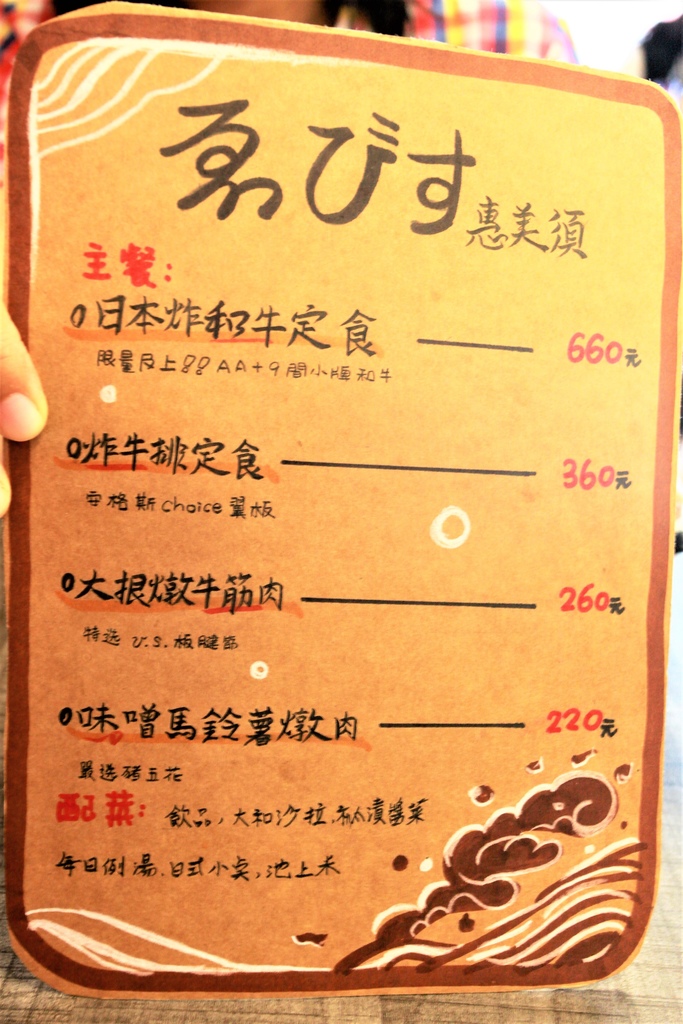 ゑびす 惠美須
主餐:
日本炸和牛定食 660元
限量 AA+9 和牛
炸牛排定食 360元
安格斯choice翼板
大根燉牛筋肉 260元
特选 U.S.板腱筋
味噌馬鈴薯燉肉 220元
嚴选豬五花
配菜: 飲品,大和沙拉,秋漬醬菜
每日例湯,日式小桌,池上米